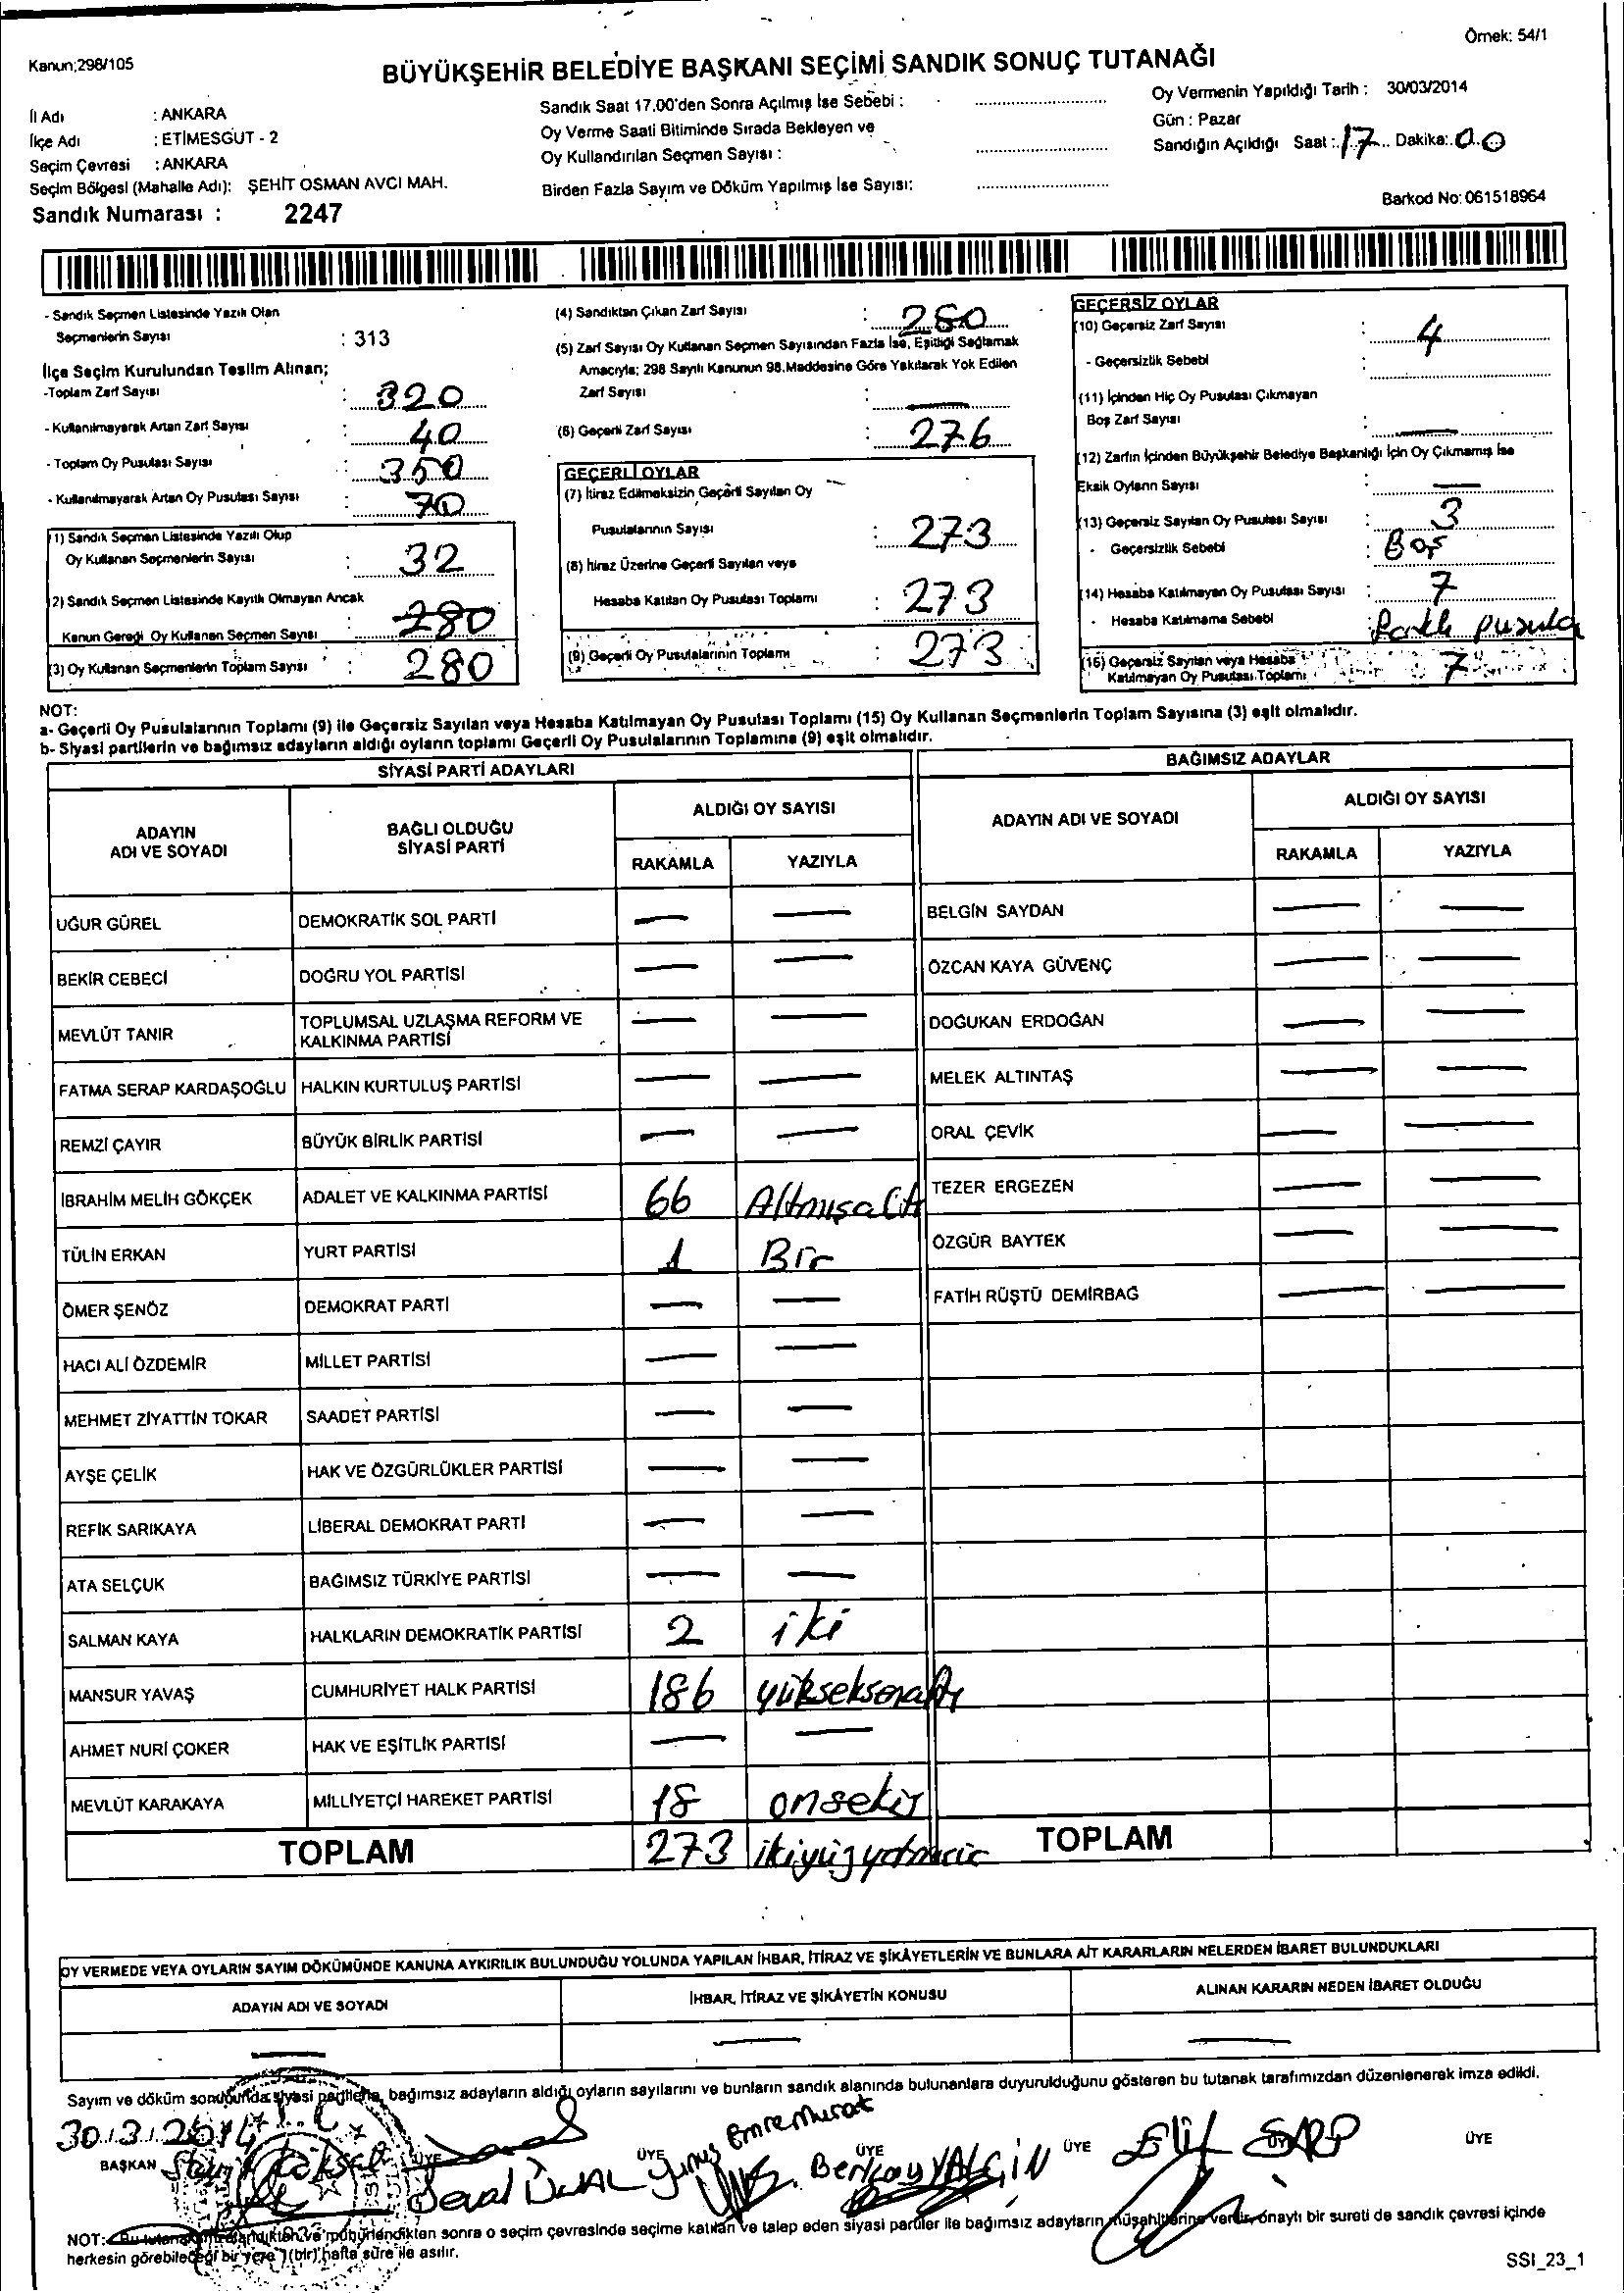 Örnek: 54/1
Kanun;298/105
BÜYÜKŞEHİR BELEDİYE BAŞKANI SEÇİMİ SANDIK SONUÇ TUTANAĞI
İl Adı : ANKARA
İlçe Adı : ETİMESGUT - 2
Seçim Çevresi : ANKARA
Seçim Bölgesi (Mahalle Adı): ŞEHİT OSMAN AVCI MAH.
Sandık Numarası : 2247
Sandık Saat 17.00'den Sonra Açılmış İse Sebebi :
Oy Verme Saati Bitiminde Sırada Bekleyen ve
Oy Kullandırılan Seçmen Sayısı :
Birden Fazla Sayım ve Döküm Yapılmış İse Sayısı:
Oy Vermenin Yapıldığı Tarih : 30/03/2014
Gün : Pazar
Sandığın Açıldığı Saat : 17 Dakika: 00
Barkod No: 061518964
- Sandık Seçmen Listesinde Yazılı Olan
Seçmenlerin Sayısı : 313
İlçe Seçim Kurulundan Teslim Alınan;
-Toplam Zarf Sayısı : 320
- Kullanılmayarak Artan Zarf Sayısı : 40
- Toplam Oy Pusulası Sayısı : 350
- Kullanılmayarak Artan Oy Pusulası Sayısı : 70
(1) Sandık Seçmen Listesinde Yazılı Olup
Oy Kullanan Seçmenlerin Sayısı : 32
(2) Sandık Seçmen Listesinde Kayıtlı Olmayan Ancak
Kanun Gereği Oy Kullanan Seçmen Sayısı : 280
(3) Oy Kullanan Seçmenlerin Toplam Sayısı : 280
(4) Sandıktan Çıkan Zarf Sayısı : 280
(5) Zarf Sayısı Oy Kullanan Seçmen Sayısından Fazla İse, Eşitliği Sağlamak
Amacıyla; 298 Sayılı Kanunun 98.Maddesine Göre Yakılarak Yok Edilen
Zarf Sayısı : —
(6) Geçerli Zarf Sayısı : 276
GEÇERLİ OYLAR
(7) İtiraz Edilmeksizin Geçerli Sayılan Oy
Pusulalarının Sayısı : 273
(8) İtiraz Üzerine Geçerli Sayılan veya
Hesaba Katılan Oy Pusulası Toplamı : 273
(9) Geçerli Oy Pusulalarının Toplamı : 273
GEÇERSİZ OYLAR
(10) Geçersiz Zarf Sayısı : 4
- Geçersizlik Sebebi :
(11) İçinden Hiç Oy Pusulası Çıkmayan
Boş Zarf Sayısı : —
(12) Zarfın İçinden Büyükşehir Belediye Başkanlığı İçin Oy Çıkmamış İse
Eksik Oyların Sayısı : —
(13) Geçersiz Sayılan Oy Pusulası Sayısı : 3
- Geçersizlik Sebebi : Boş
(14) Hesaba Katılmayan Oy Pusulası Sayısı : 7
- Hesaba Katılmama Sebebi : Farklı pusula
(15) Geçersiz Sayılan veya Hesaba
Katılmayan Oy Pusulası Toplamı : 7
NOT:
a- Geçerli Oy Pusulalarının Toplamı (9) ile Geçersiz Sayılan veya Hesaba Katılmayan Oy Pusulası Toplamı (15) Oy Kullanan Seçmenlerin Toplam Sayısına (3) eşit olmalıdır.
b- Siyasi partilerin ve bağımsız adayların aldığı oyların toplamı Geçerli Oy Pusulalarının Toplamına (9) eşit olmalıdır.
SİYASİ PARTİ ADAYLARI
BAĞIMSIZ ADAYLAR
ADAYIN ADI VE SOYADI
BAĞLI OLDUĞU SİYASİ PARTİ
ALDIĞI OY SAYISI
RAKAMLA YAZIYLA
ADAYIN ADI VE SOYADI
ALDIĞI OY SAYISI
RAKAMLA YAZIYLA
UĞUR GÜREL DEMOKRATİK SOL PARTİ — — BELGİN SAYDAN — —
BEKİR CEBECİ DOĞRU YOL PARTİSİ — — ÖZCAN KAYA GÜVENÇ — —
MEVLÜT TANIR TOPLUMSAL UZLAŞMA REFORM VE KALKINMA PARTİSİ — — DOĞUKAN ERDOĞAN — —
FATMA SERAP KARDAŞOĞLU HALKIN KURTULUŞ PARTİSİ — — MELEK ALTINTAŞ — —
REMZİ ÇAYIR BÜYÜK BİRLİK PARTİSİ — — ORAL ÇEVİK — —
İBRAHİM MELİH GÖKÇEK ADALET VE KALKINMA PARTİSİ 66 Altmışaltı TEZER ERGEZEN — —
TÜLİN ERKAN YURT PARTİSİ 1 Bir ÖZGÜR BAYTEK — —
ÖMER ŞENÖZ DEMOKRAT PARTİ — — FATİH RÜŞTÜ DEMİRBAĞ — —
HACI ALİ ÖZDEMİR MİLLET PARTİSİ — —
MEHMET ZİYATTİN TOKAR SAADET PARTİSİ — —
AYŞE ÇELİK HAK VE ÖZGÜRLÜKLER PARTİSİ — —
REFİK SARIKAYA LİBERAL DEMOKRAT PARTİ — —
ATA SELÇUK BAĞIMSIZ TÜRKİYE PARTİSİ — —
SALMAN KAYA HALKLARIN DEMOKRATİK PARTİSİ 2 iki
MANSUR YAVAŞ CUMHURİYET HALK PARTİSİ 186 yükseksenaltı
AHMET NURİ ÇOKER HAK VE EŞİTLİK PARTİSİ — —
MEVLÜT KARAKAYA MİLLİYETÇİ HAREKET PARTİSİ 18 onsekiz
TOPLAM 273 TOPLAM
OY VERMEDE VEYA OYLARIN SAYIM DÖKÜMÜNDE KANUNA AYKIRILIK BULUNDUĞU YOLUNDA YAPILAN İHBAR, İTİRAZ VE ŞİKÂYETLERİN VE BUNLARA AİT KARARLARIN NELERDEN İBARET BULUNDUKLARI
ADAYIN ADI VE SOYADI İHBAR, İTİRAZ VE ŞİKÂYETİN KONUSU ALINAN KARARIN NEDEN İBARET OLDUĞU
— — —
Sayım ve döküm sonucunda siyasi partilerle, bağımsız adayların aldığı oyların sayılarını ve bunların sandık alanında bulunanlara duyurulduğunu gösteren bu tutanak tarafımızdan düzenlenerek imza edildi.
30.3.2014 T.C.
BAŞKAN ÜYE ÜYE ÜYE ÜYE ÜYE ÜYE
Emre Murat
Yunus
Berkay YALÇIN
Elif SARP
NOT: Bu tutanak imzalandıktan ve mühürlendikten sonra o seçim çevresinde seçime katılan ve talep eden siyasi partiler ile bağımsız adayların müşahitlerine verilir, onaylı bir sureti de sandık çevresi içinde
herkesin görebileceği bir yere 1(bir) hafta süre ile asılır.
SSI_23_1